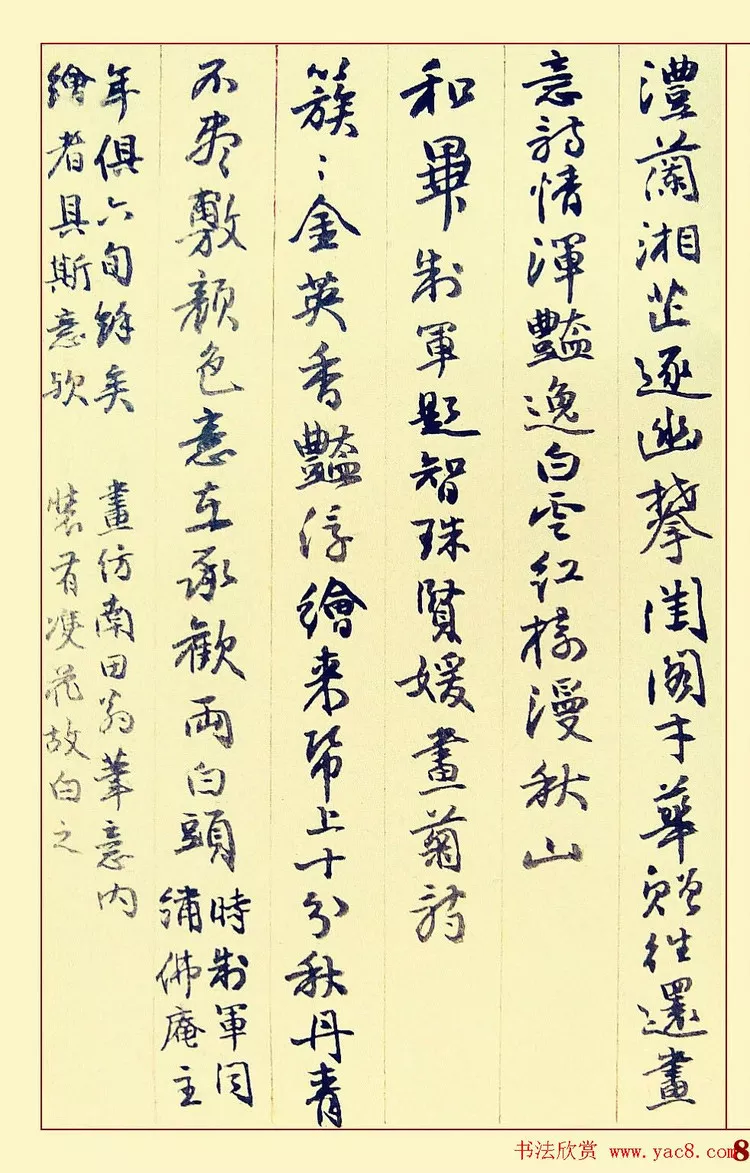 澧蘭湘芷逐幽攀閨閣才華贈往還畫
意詩情渾豔逸白雲紅樹漫秋山
和畢制軍題智珠賢媛畫菊詩
簇〻金英香豔浮繪来帋上十分秋丹青
不敷顏色意在承歡兩白頭
時制軍同
繡佛庵主
年俱六旬餘矣
繪者具斯意歟
畫仿南田翁筆意内
裝有雙花故白之
书法欣赏 www.yac8.com
8